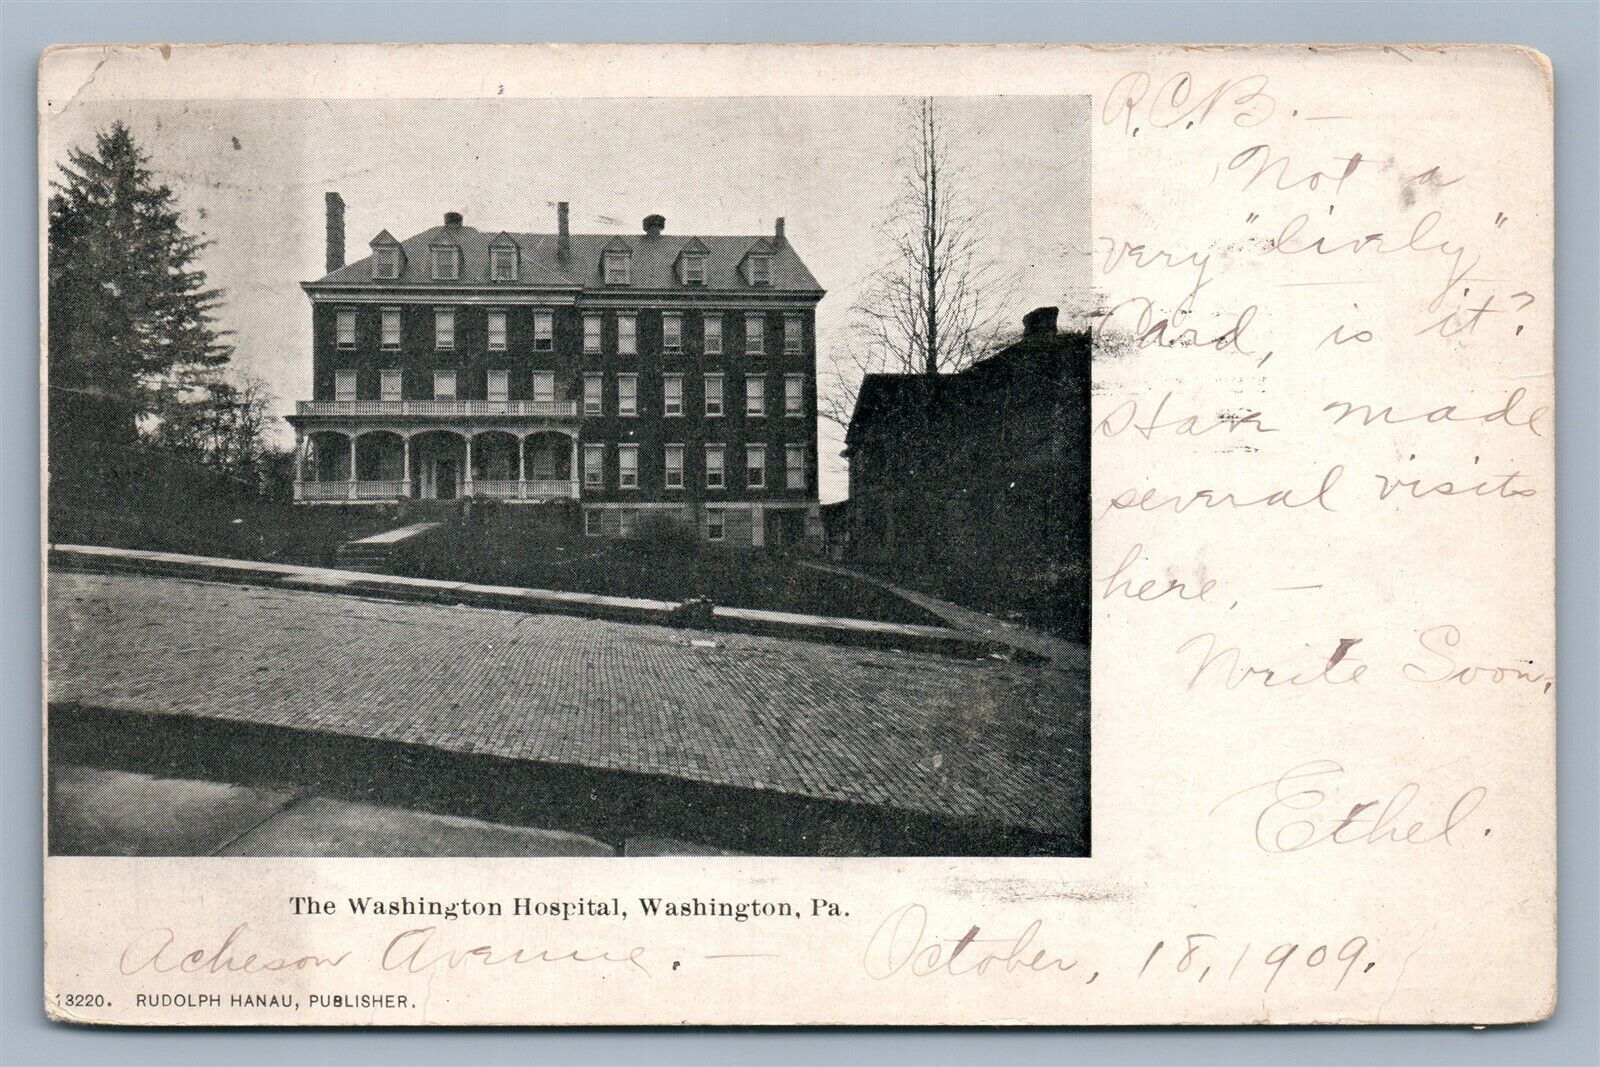 R.C.B. —
Not a
very "lively"
Card, is it?
Have made
several visits
here, —
Write Soon,
Ethel.
The Washington Hospital, Washington, Pa.
Acheson Avenue. — October, 18, 1909.
13220. RUDOLPH HANAU, PUBLISHER.